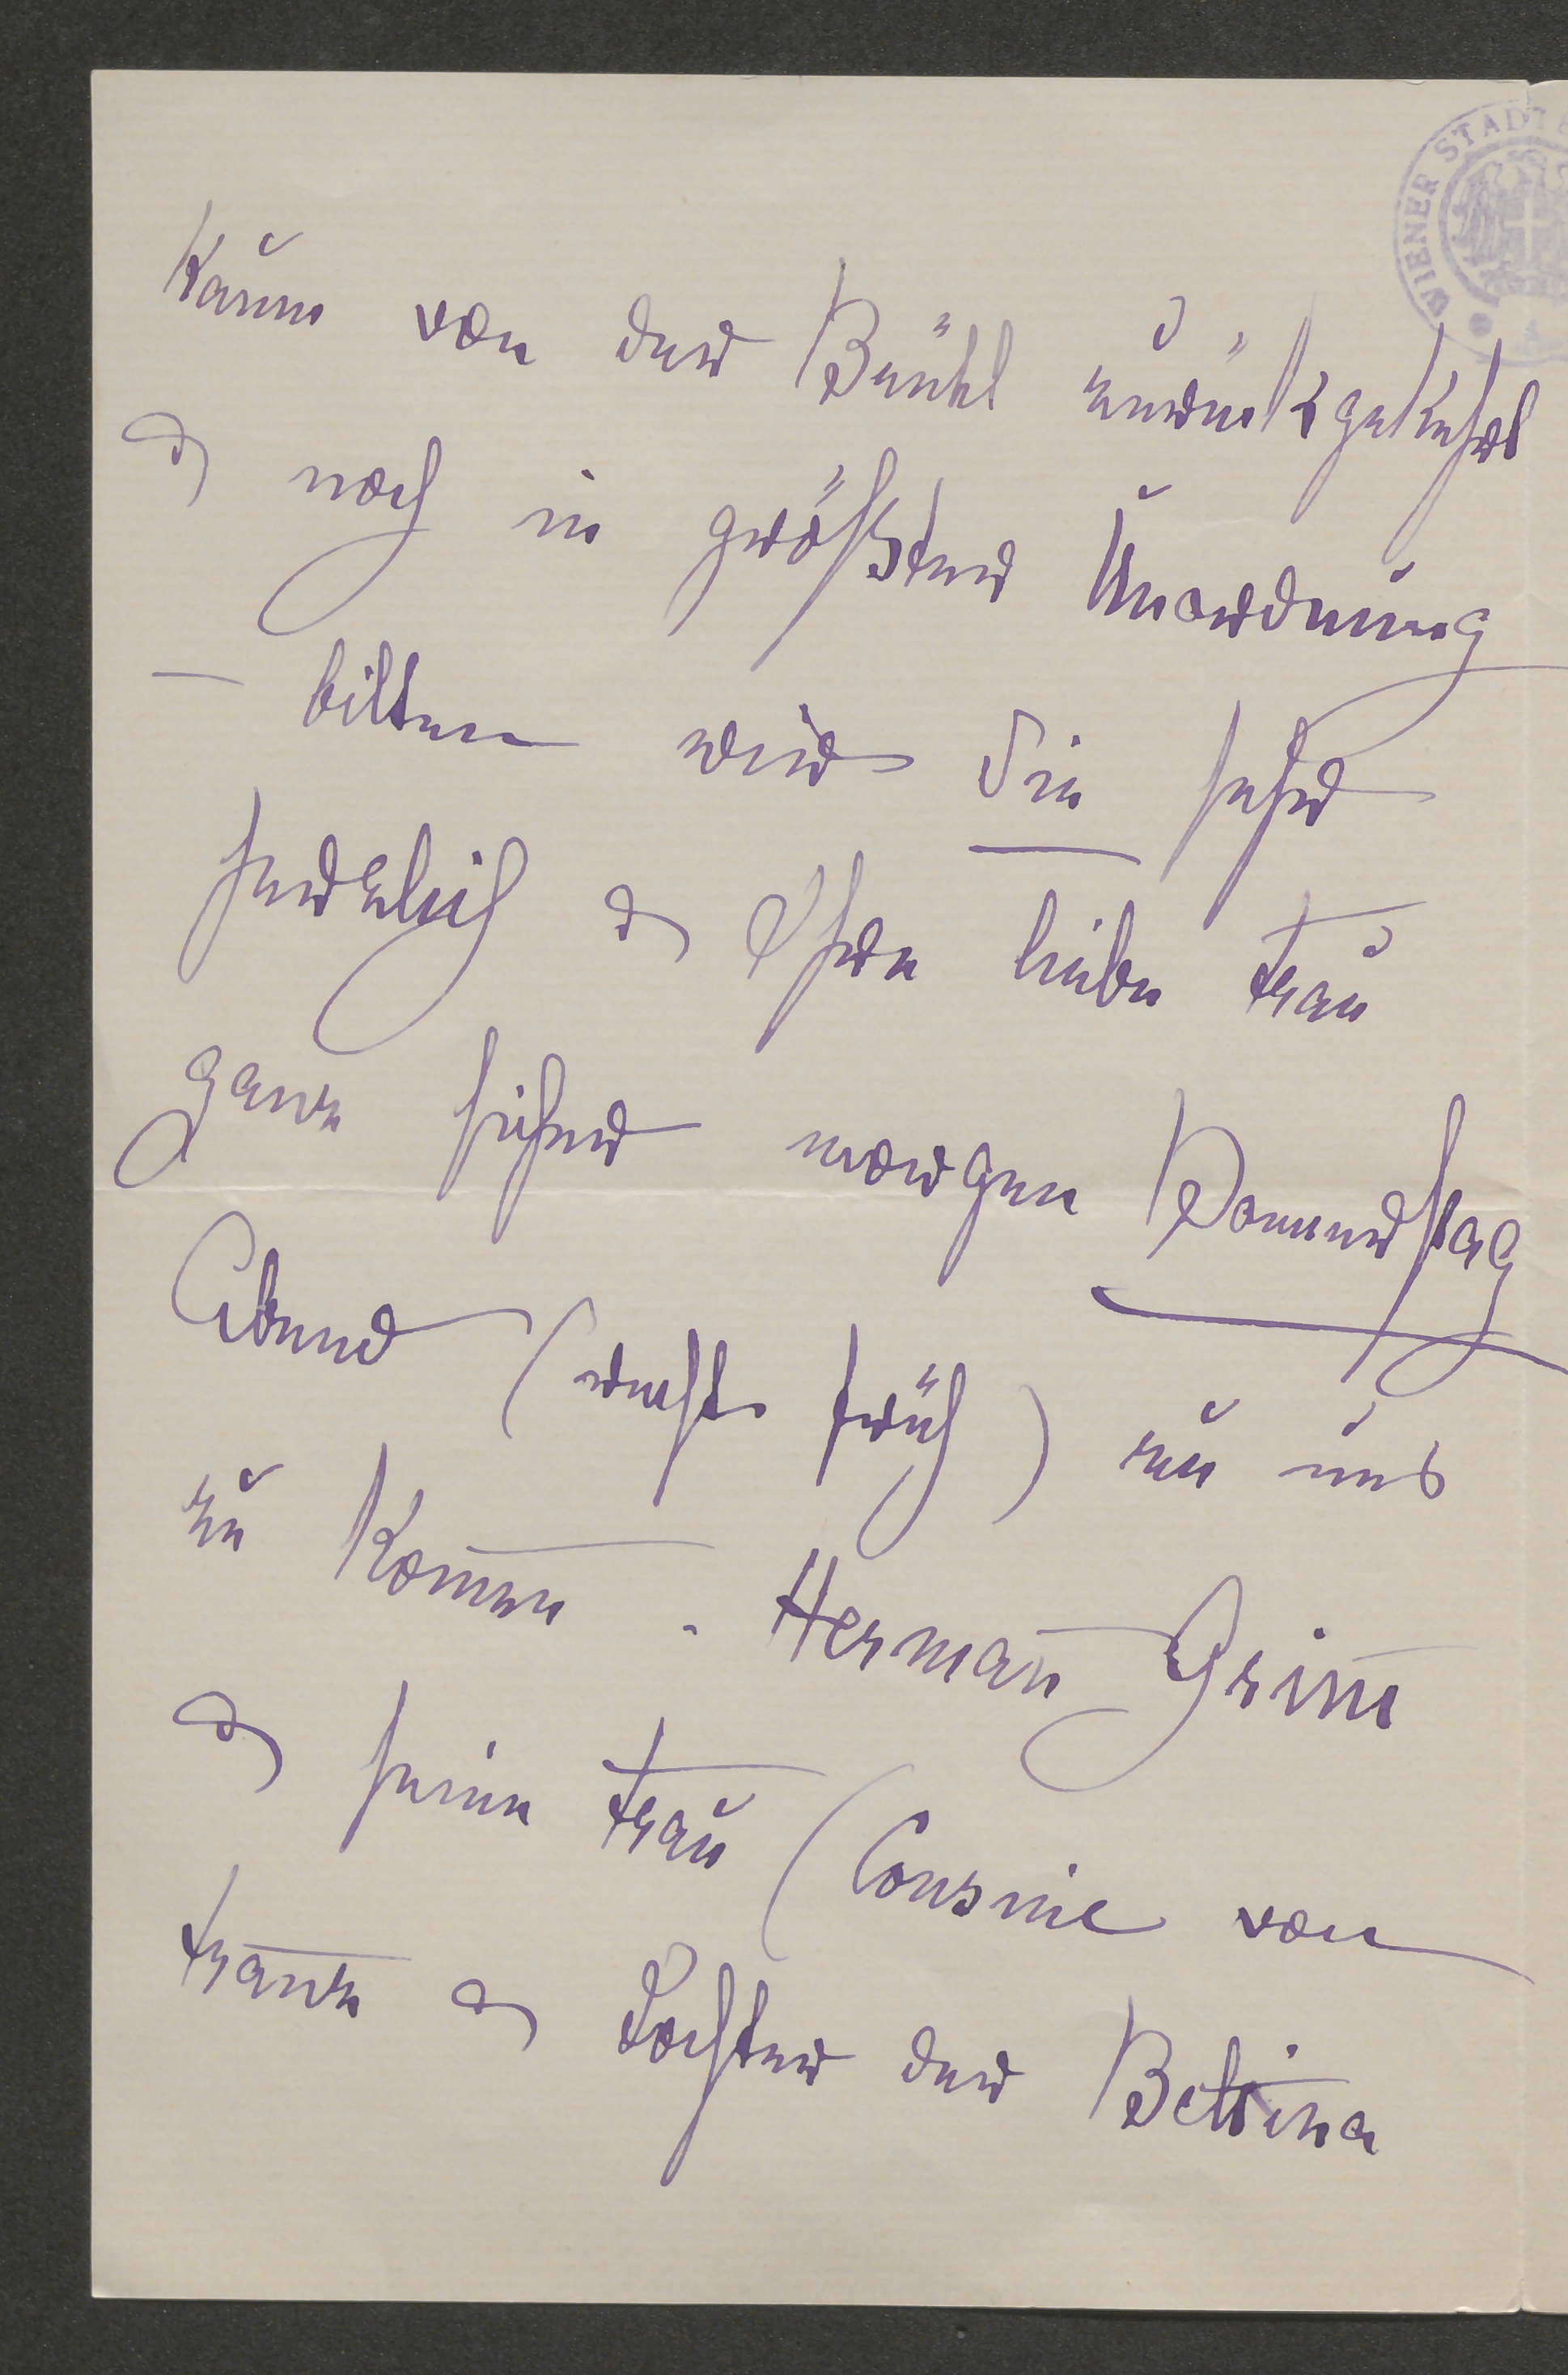 WIENER STADTB
Kaum von der Brühl zurückgekehrt
& noch in größter Unordnung
– bitten wir Sie sehr
herzlich & Ihre liebe Frau
ganz sicher morgen Donnerstag
Abend (recht früh) zu uns
zu kom̄en. Herman̄ Grim̄
& seine Frau (Cousine von
Franz & Tochter der Bettina